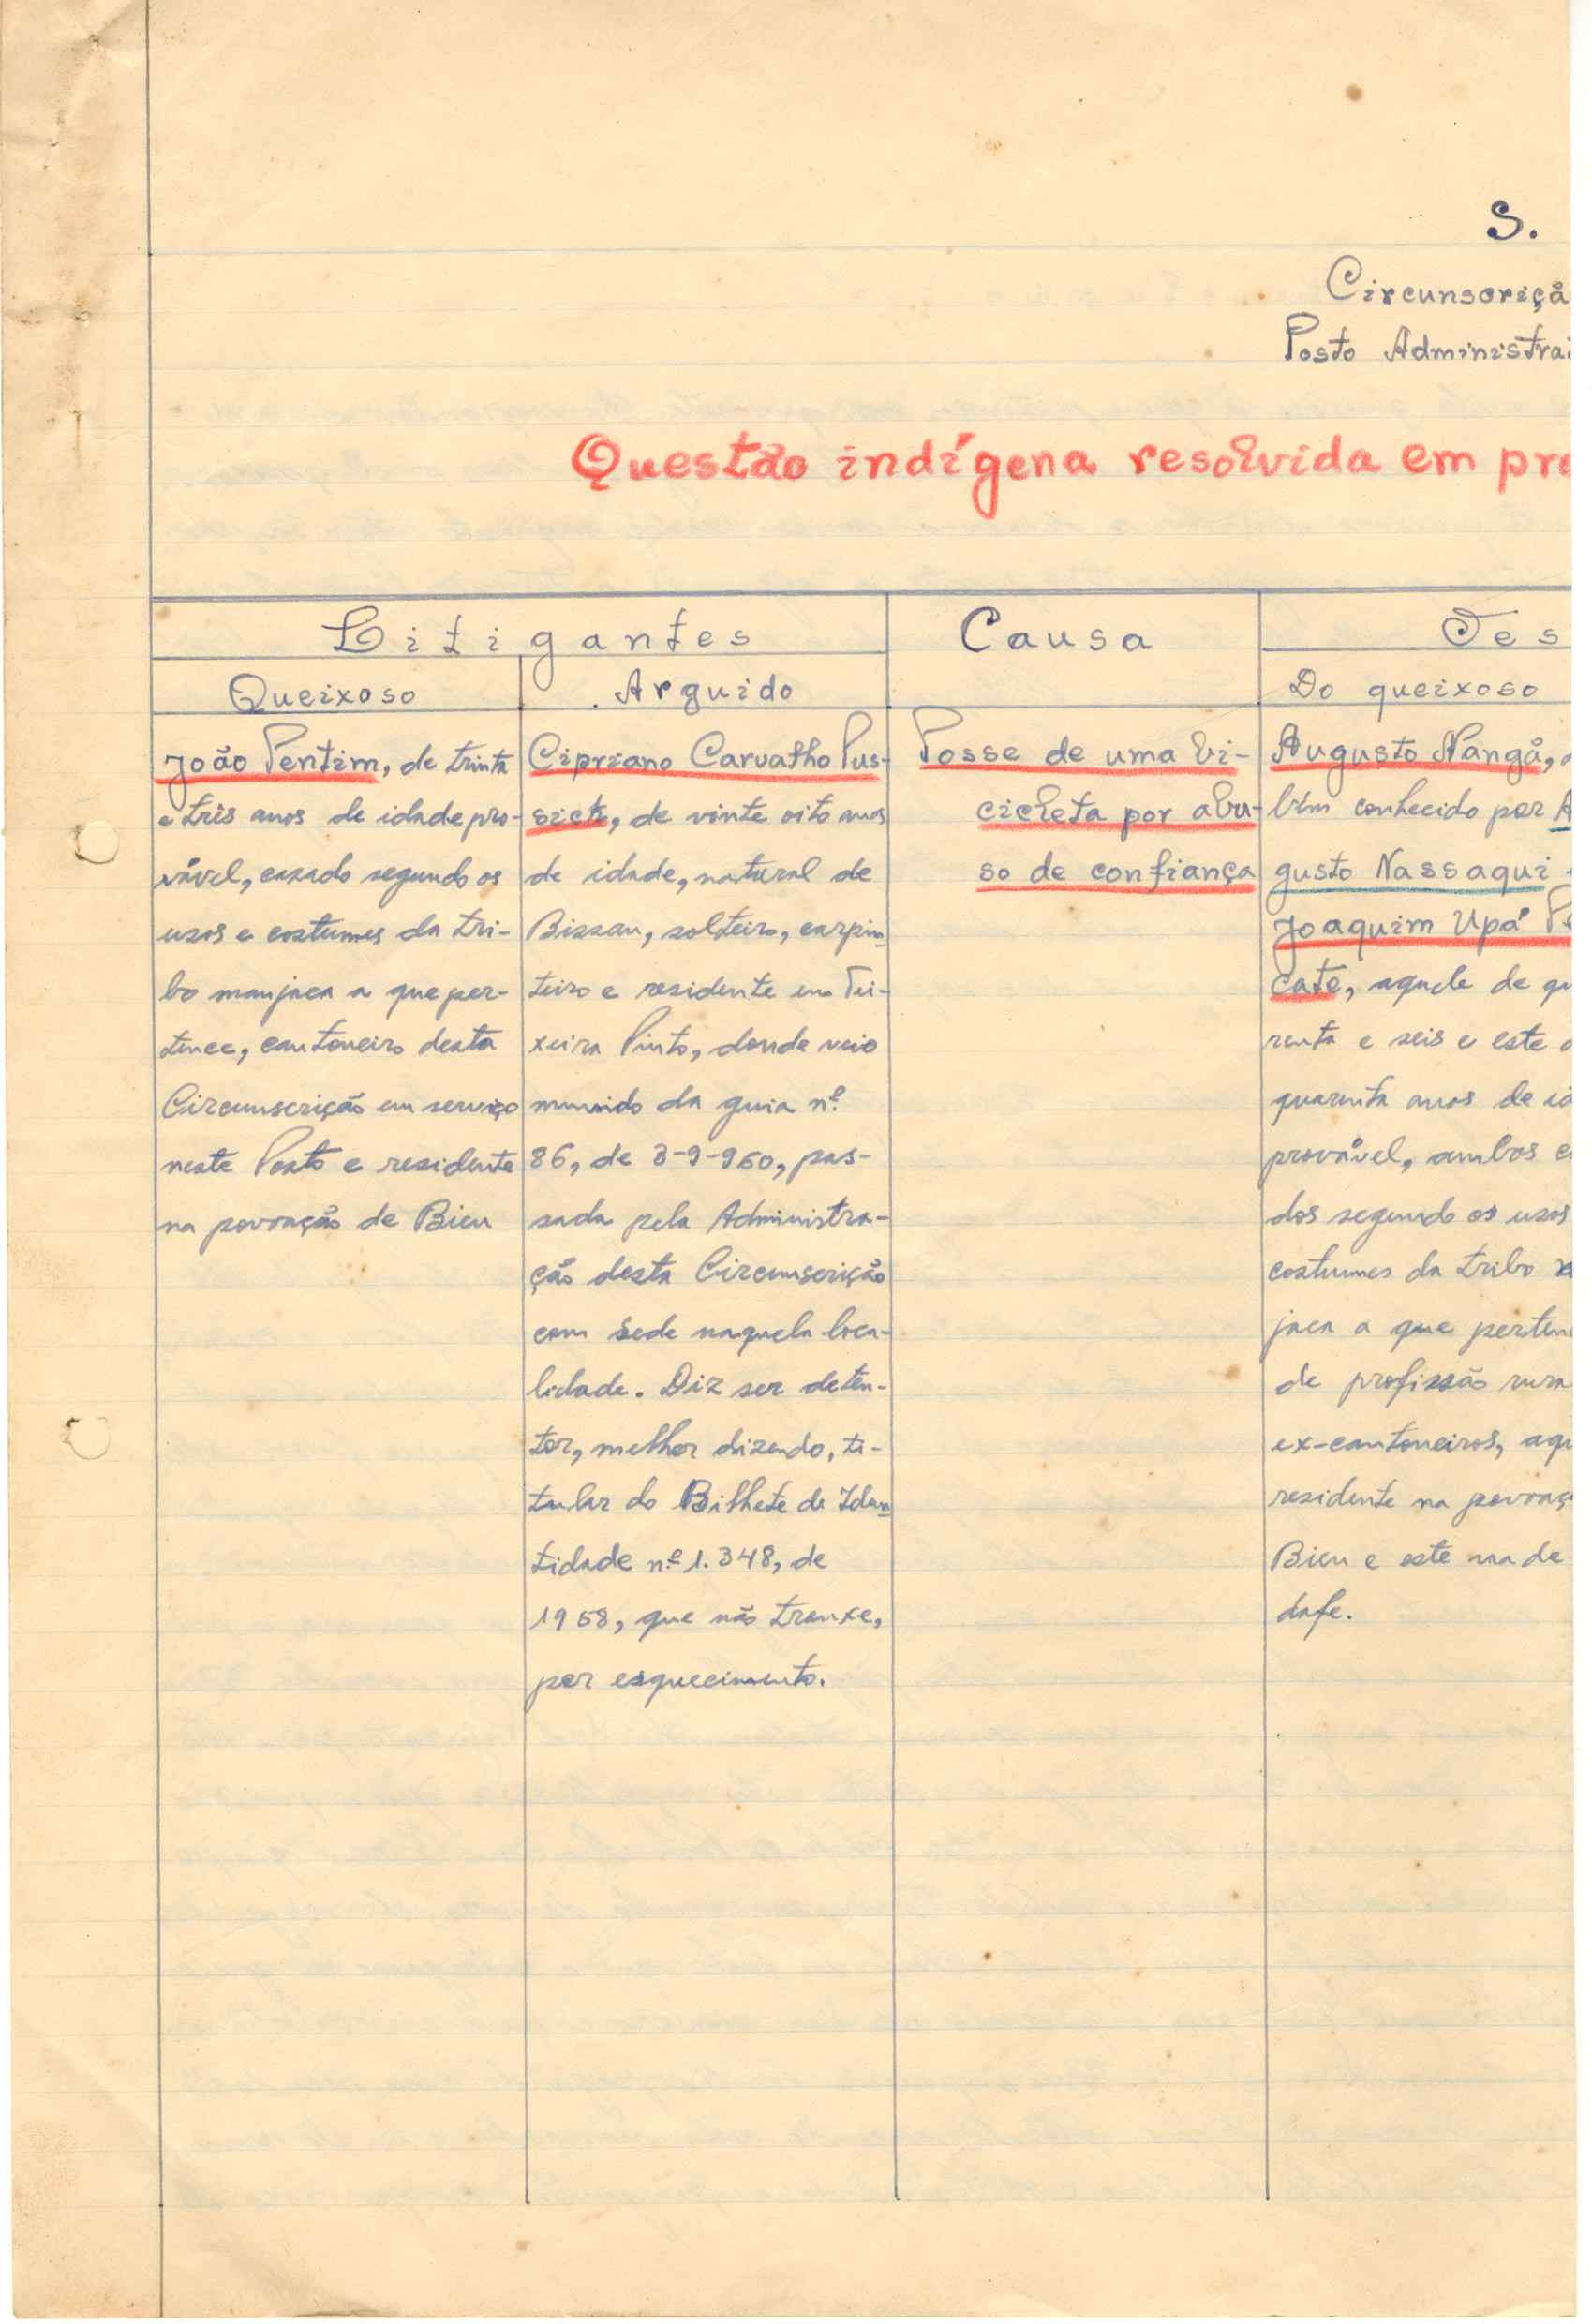 S.
Circunscriçã
Posto Administra
Questão indígena resolvida em pr
Litigantes
Queixoso
João Pentim, de trinta
e três anos de idade pro-
vável, casado segundo os
usos e costumes da tri-
bo manjaca a que per-
tence, cantoneiro desta
Circunscrição em serviço
neste Posto e residente
na povoação de Bieu
Arguido
Cipriano Carvalho Pus-
sick, de vinte oito anos
de idade, natural de
Bissau, solteiro, carpin
teiro e residente em Tei-
xeira Pinto, donde veio
munido da guia nº
86, de 3-9-960, pas-
sada pela Administra-
ção desta Circunscrição
com sede naquela loca-
lidade. Diz ser deten-
tor, melhor dizendo, ti-
tular do Bilhete de Iden
tidade nº 1.348, de
1958, que não trouxe,
por esquecimento.
Causa
Posse de uma bi-
cicleta por abu-
so de confiança
Tes
Do queixoso
Augusto Nangã,
bém conhecido por A
gusto Nassaqui
Joaquim Upá
cate, aquele de qu
renta e seis e este
quarenta anos de id
provável, ambos
dos segundo os usos
costumes da tribo
jaca a que perten
de profissão rura
ex-cantoneiros, aqu
residente na povoaç
Bieu e este na de
dafe.